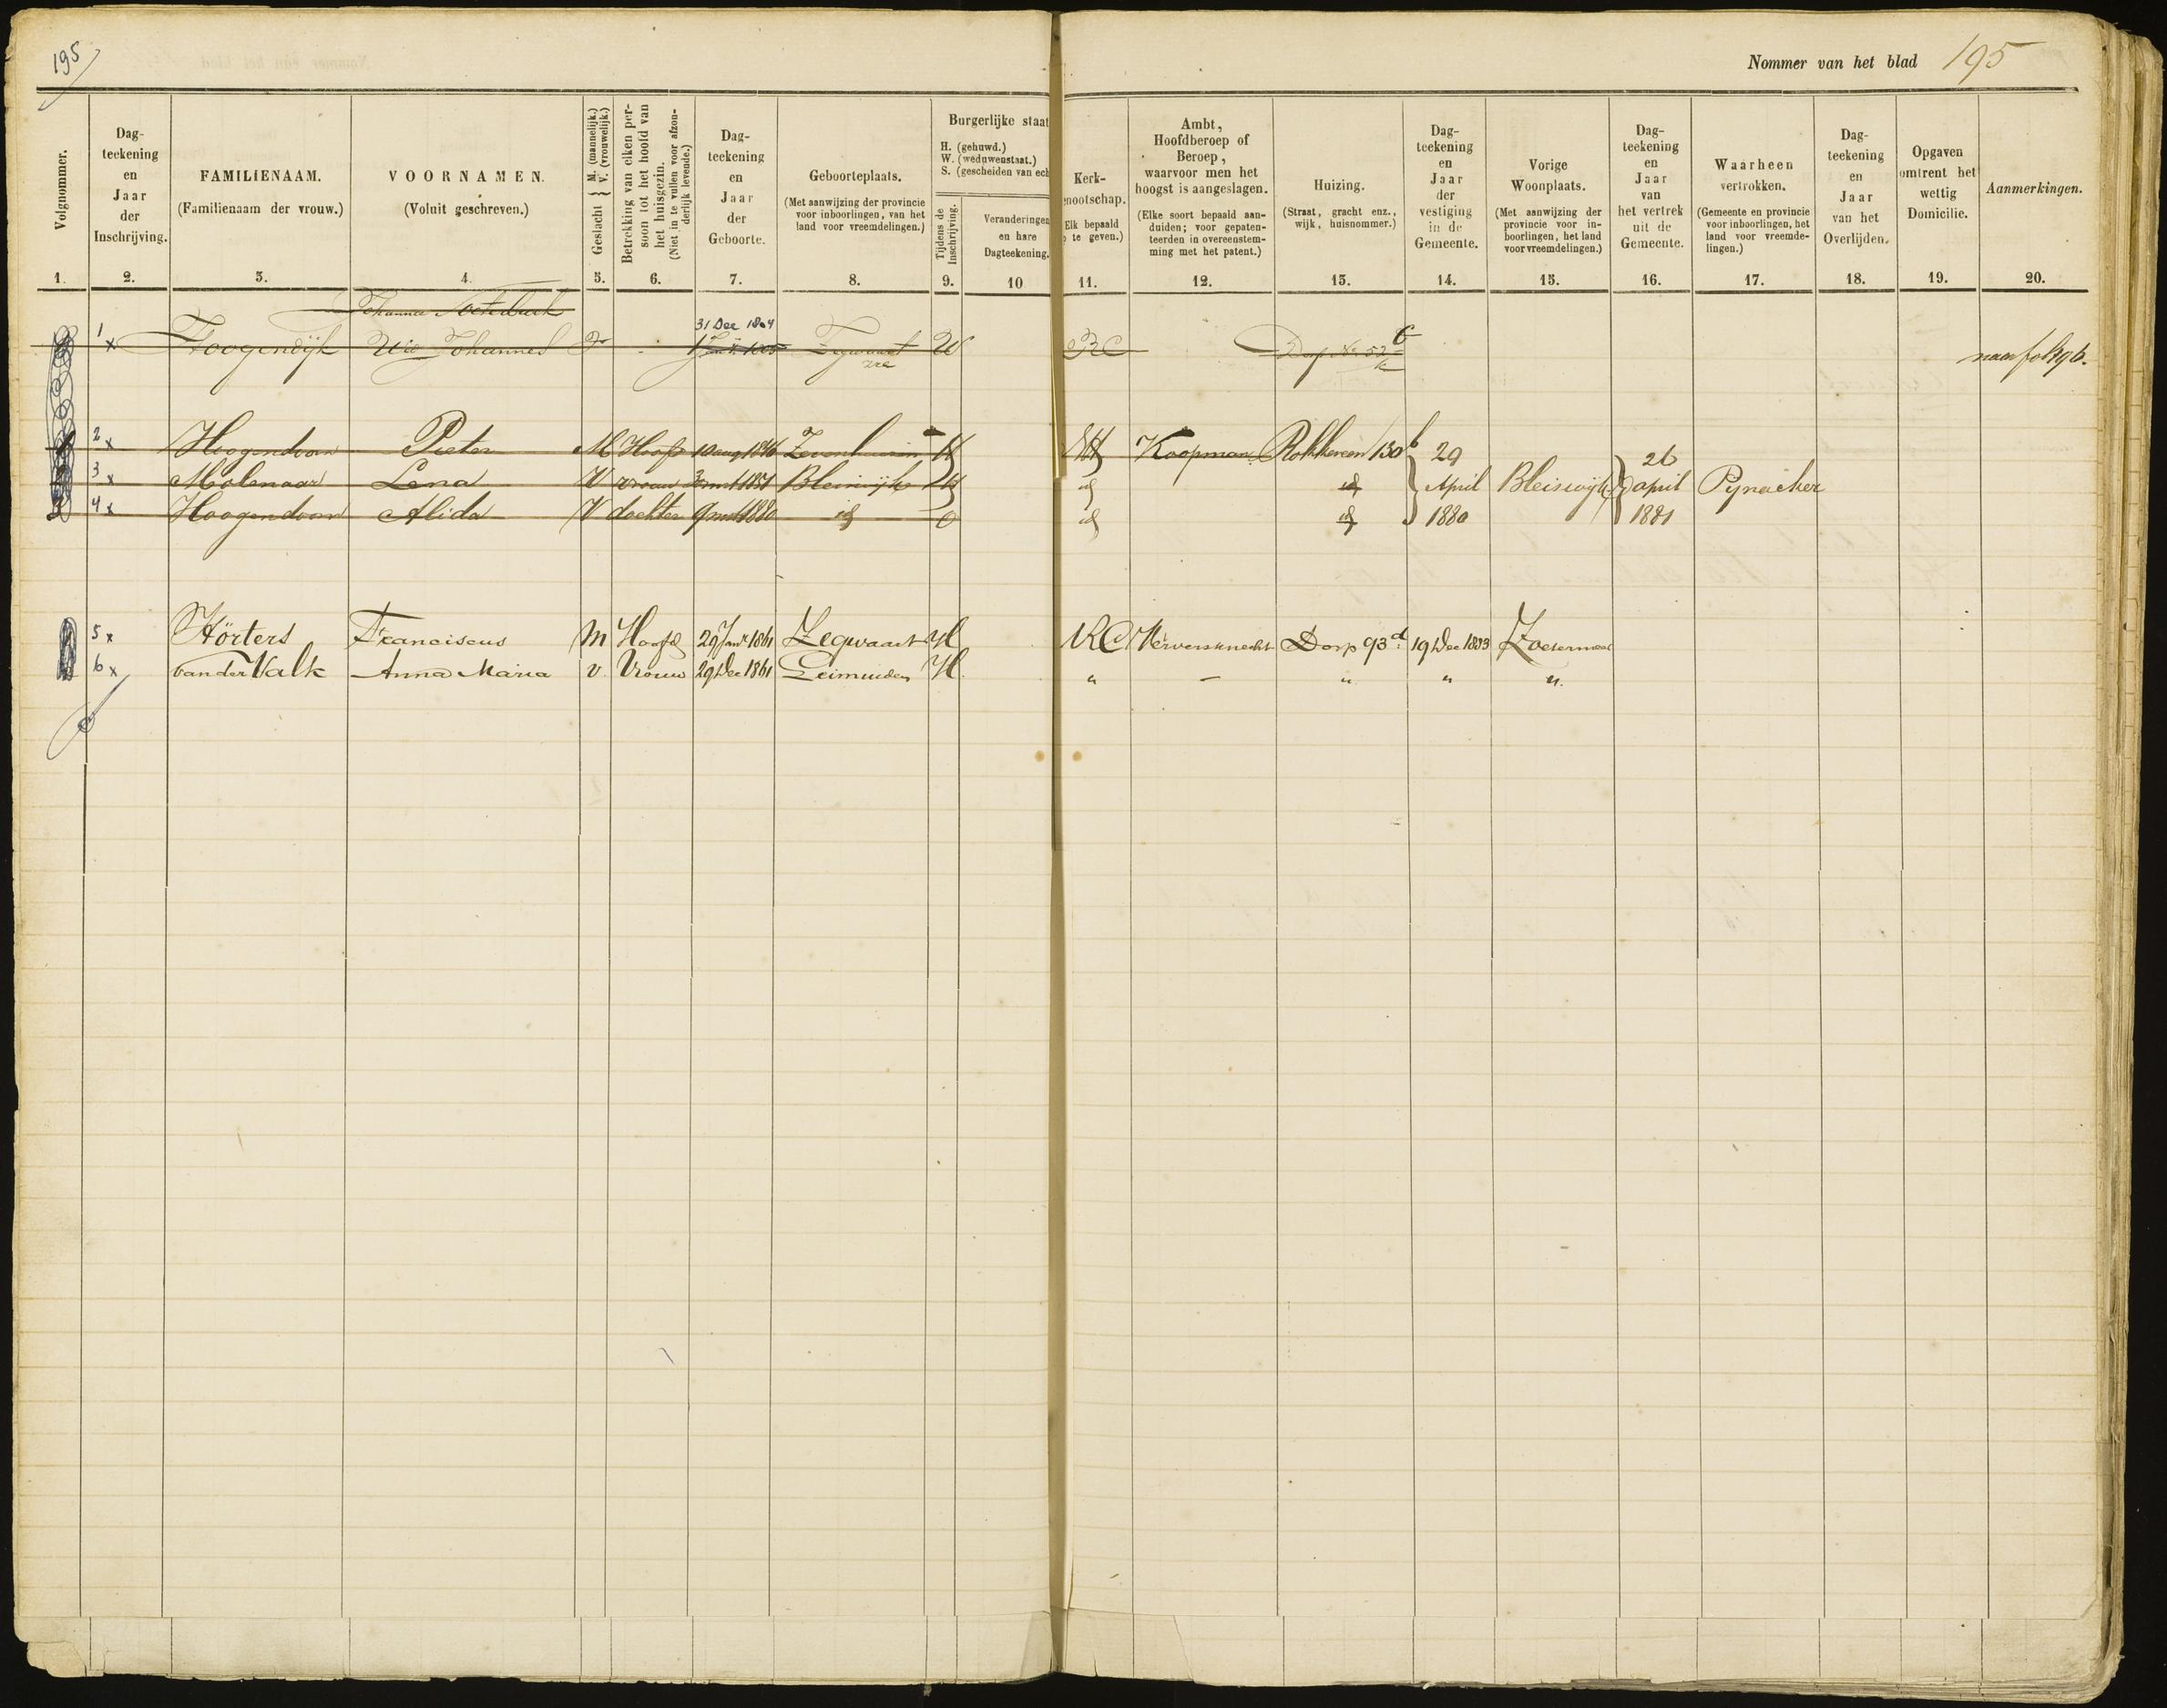 195
Nommer van het blad 195
Volgnommer.
Dag-
teekening
en
Jaar
der
Inschrijving.
FAMILIENAAM.
(Familienaam der vrouw.)
VOORNAMEN.
(Voluit geschreven.)
Geslacht { M. (mannelijk.) V. (vrouwelijk.)
Betrekking van elken per-
soon tot het hoofd van
het huisgezin.
(Niet in te vullen voor afzon-
derlijk levende.)
Dag-
teekening
en
Jaar
der
Geboorte.
Geboorteplaats.
(Met aanwijzing der provincie
voor inboorlingen, van het
land voor vreemdelingen.)
Burgerlijke staat
H. (gehuwd.)
W. (weduwenstaat.)
S. (gescheiden van ech
Tijdens de
Inschrijving.
Veranderingen
en hare
Dagteekening.
Kerk-
enootschap.
Elk bepaald
te geven.)
Ambt,
Hoofdberoep of
Beroep,
waarvoor men het
hoogst is aangeslagen.
(Elke soort bepaald aan-
duiden; voor gepaten-
teerden in overeenstem-
ming met het patent.)
Huizing.
(Straat, gracht enz.,
wijk, huisnommer.)
Dag-
teekening
en
Jaar
der
vestiging
in de
Gemeente.
Vorige
Woonplaats.
(Met aanwijzing der
provincie voor in-
boorlingen, het land
voor vreemdelingen.)
Dag-
teekening
en
Jaar
van
het vertrek
uit de
Gemeente.
Waarheen
vertrokken.
(Gemeente en provincie
voor inboorlingen, het
land voor vreemde-
lingen.)
Dag-
teekening
en
Jaar
van het
Overlijden.
Opgaven
omtrent het
wettig
Domicilie.
Aanmerkingen.
1. 2. 3. 4. 5. 6. 7. 8. 9. 10 11. 12. 13. 14. 15. 16. 17. 18. 19. 20.
Johanna
31 Dec 1804
1 x Hoogendijk Johannes Zegwaart W RC Dorp No 52 naar fol 196.
2 x Hoogendoorn Pieter M Hoofd 10 aug 1846 H NH Koopman Rokkeveen 130 b 29
3 x Molenaar Lena V vrouw Bleiswijk H id id April Bleiswijk
4 x Hoogendoorn Alida V dochter 9 mrt 1880 id O id id 1880
26 april 1881 Pynacker
5 x Hörters Franciscus M Hoofd 29 Jan 1861 Zegwaart H RC Ververs knecht Dorp 93 d 19 Dec 1883 Zoetermeer
6 x van der Valk Anna Maria V Vrouw 29 Dec 1861 Leimuiden H " – " " "